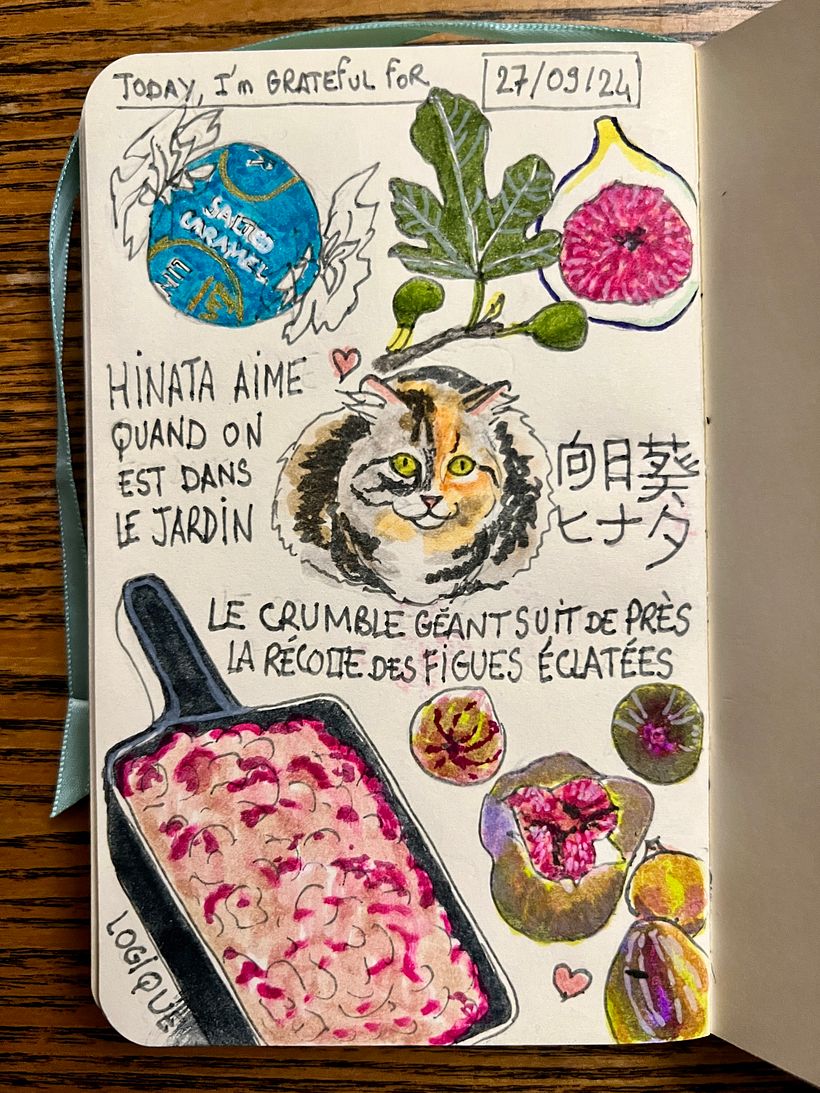 TODAY, I'm GRATEFUL FOR
27/09/24
SALTED
CARAMEL
HINATA AIME
QUAND ON
EST DANS
LE JARDIN
向日葵
ヒナタ
LE CRUMBLE GÉANT SUIT DE PRÈS
LA RÉCOLTE DES FIGUES ÉCLATÉES
LOGIQUE